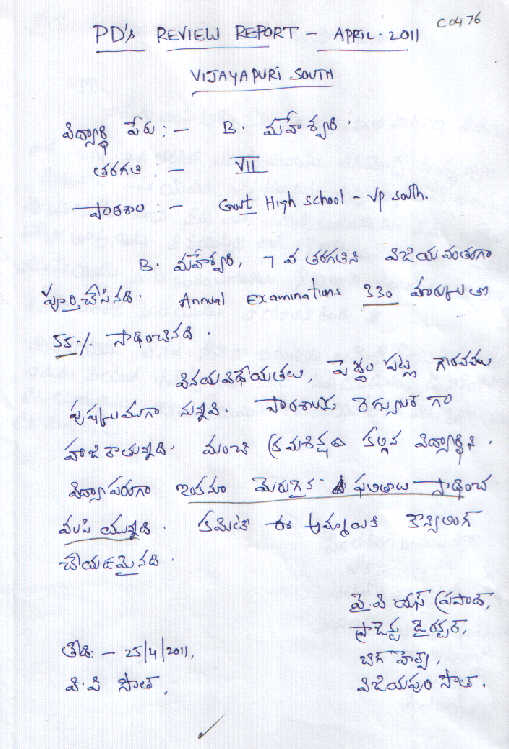 C0476
PD's REVIEW REPORT - APRIL-2011
VIJAYAPURI SOUTH
విద్యార్థి పేరు :- B. మహేశ్వరి.
తరగతి :- VII
పాఠశాల :- Govt High school - Vp south.
B. మహేశ్వరి, 7 వ తరగతిని విజయవంతంగా
పూర్తిచేసినది. Annual Examinations 330 మార్కులతో
55% సాధించినది.
వినయవిధేయతలు, పెద్దల పట్ల గౌరవము
పుష్కలముగా నున్నవి. పాఠశాలకు రెగ్యులర్ గా
హాజరౌతున్నది. మంచి క్రమశిక్షణ కల్గిన విద్యార్థిని.
విద్యాపరంగా ఇంకనూ మెరుగైన ఫలితాలు సాధించ
వలసి యున్నది. కమిటీ ఈ అమ్మాయికి కౌన్సిలింగ్
చేయడమైనది.
వై.పి యస్ ప్రసాద్,
ప్రాజెక్ట్ డైరెక్టర్,
తేది :- 25/4/2011, బిగ్ హెల్ప్,
వి.పి సౌత్, విజయపురి సౌత్.